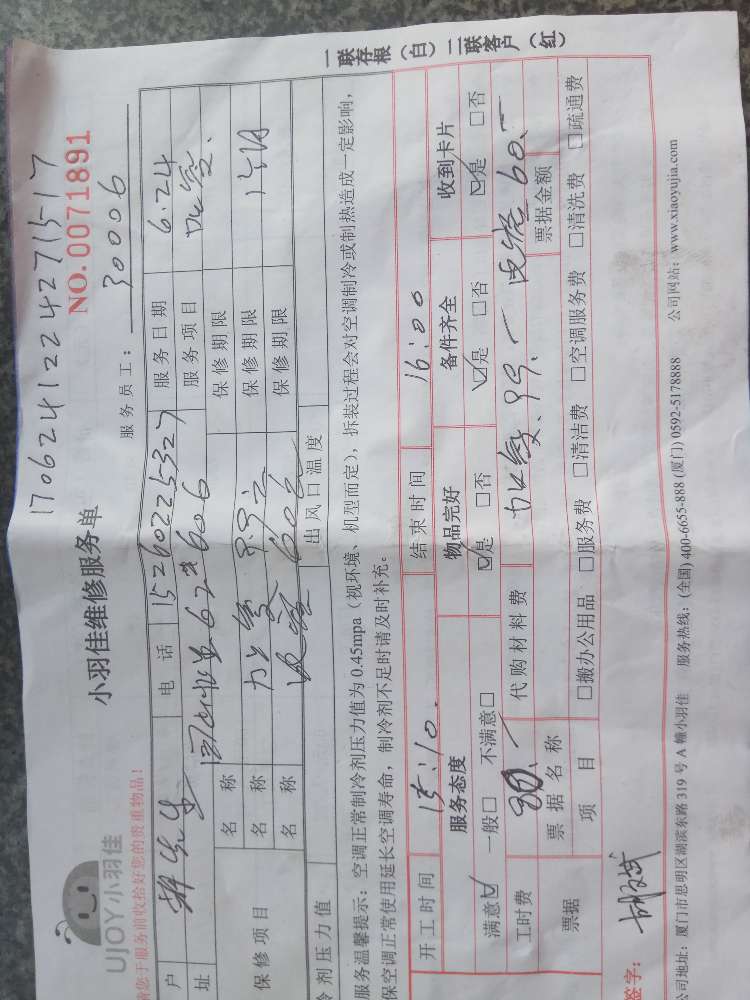 一联存根（白）二联客户（红）
17062412242715-17
NO.0071891
UJOY小羽佳
小羽佳维修服务单
服务员工：30006
请您于服务前收拾好您的贵重物品！
户 电话 15260225327 服务日期 6.24
址 67# 606 服务项目
保修项目
名称 保修期限
名称 加氟 99元 保修期限
名称 60元 保修期限
冷剂压力值 出风口温度
服务温馨提示：空调正常制冷剂压力值为0.45mpa（视环境、机型而定），拆装过程会对空调制冷或制热造成一定影响，
保空调正常使用延长空调寿命，制冷剂不足时请及时补充。
开工时间 15:10. 结束时间 16:00
服务态度 物品完好 备件齐全 收到卡片
满意☑ 一般□ 不满意□ ☑是 □否 ☑是 □否 ☑是 □否
工时费 代购材料费 加氟.99.- 60.-
票据 票据名称 票据金额
项目 □搬办公用品 □服务费 □清洁费 □空调服务费 □清洗费 □疏通费
签字：
公司地址：厦门市思明区湖滨东路319号A幢小羽佳 服务热线：(全国) 400-6655-888 (厦门) 0592-5178888 公司网站：www.xiaoyujia.com